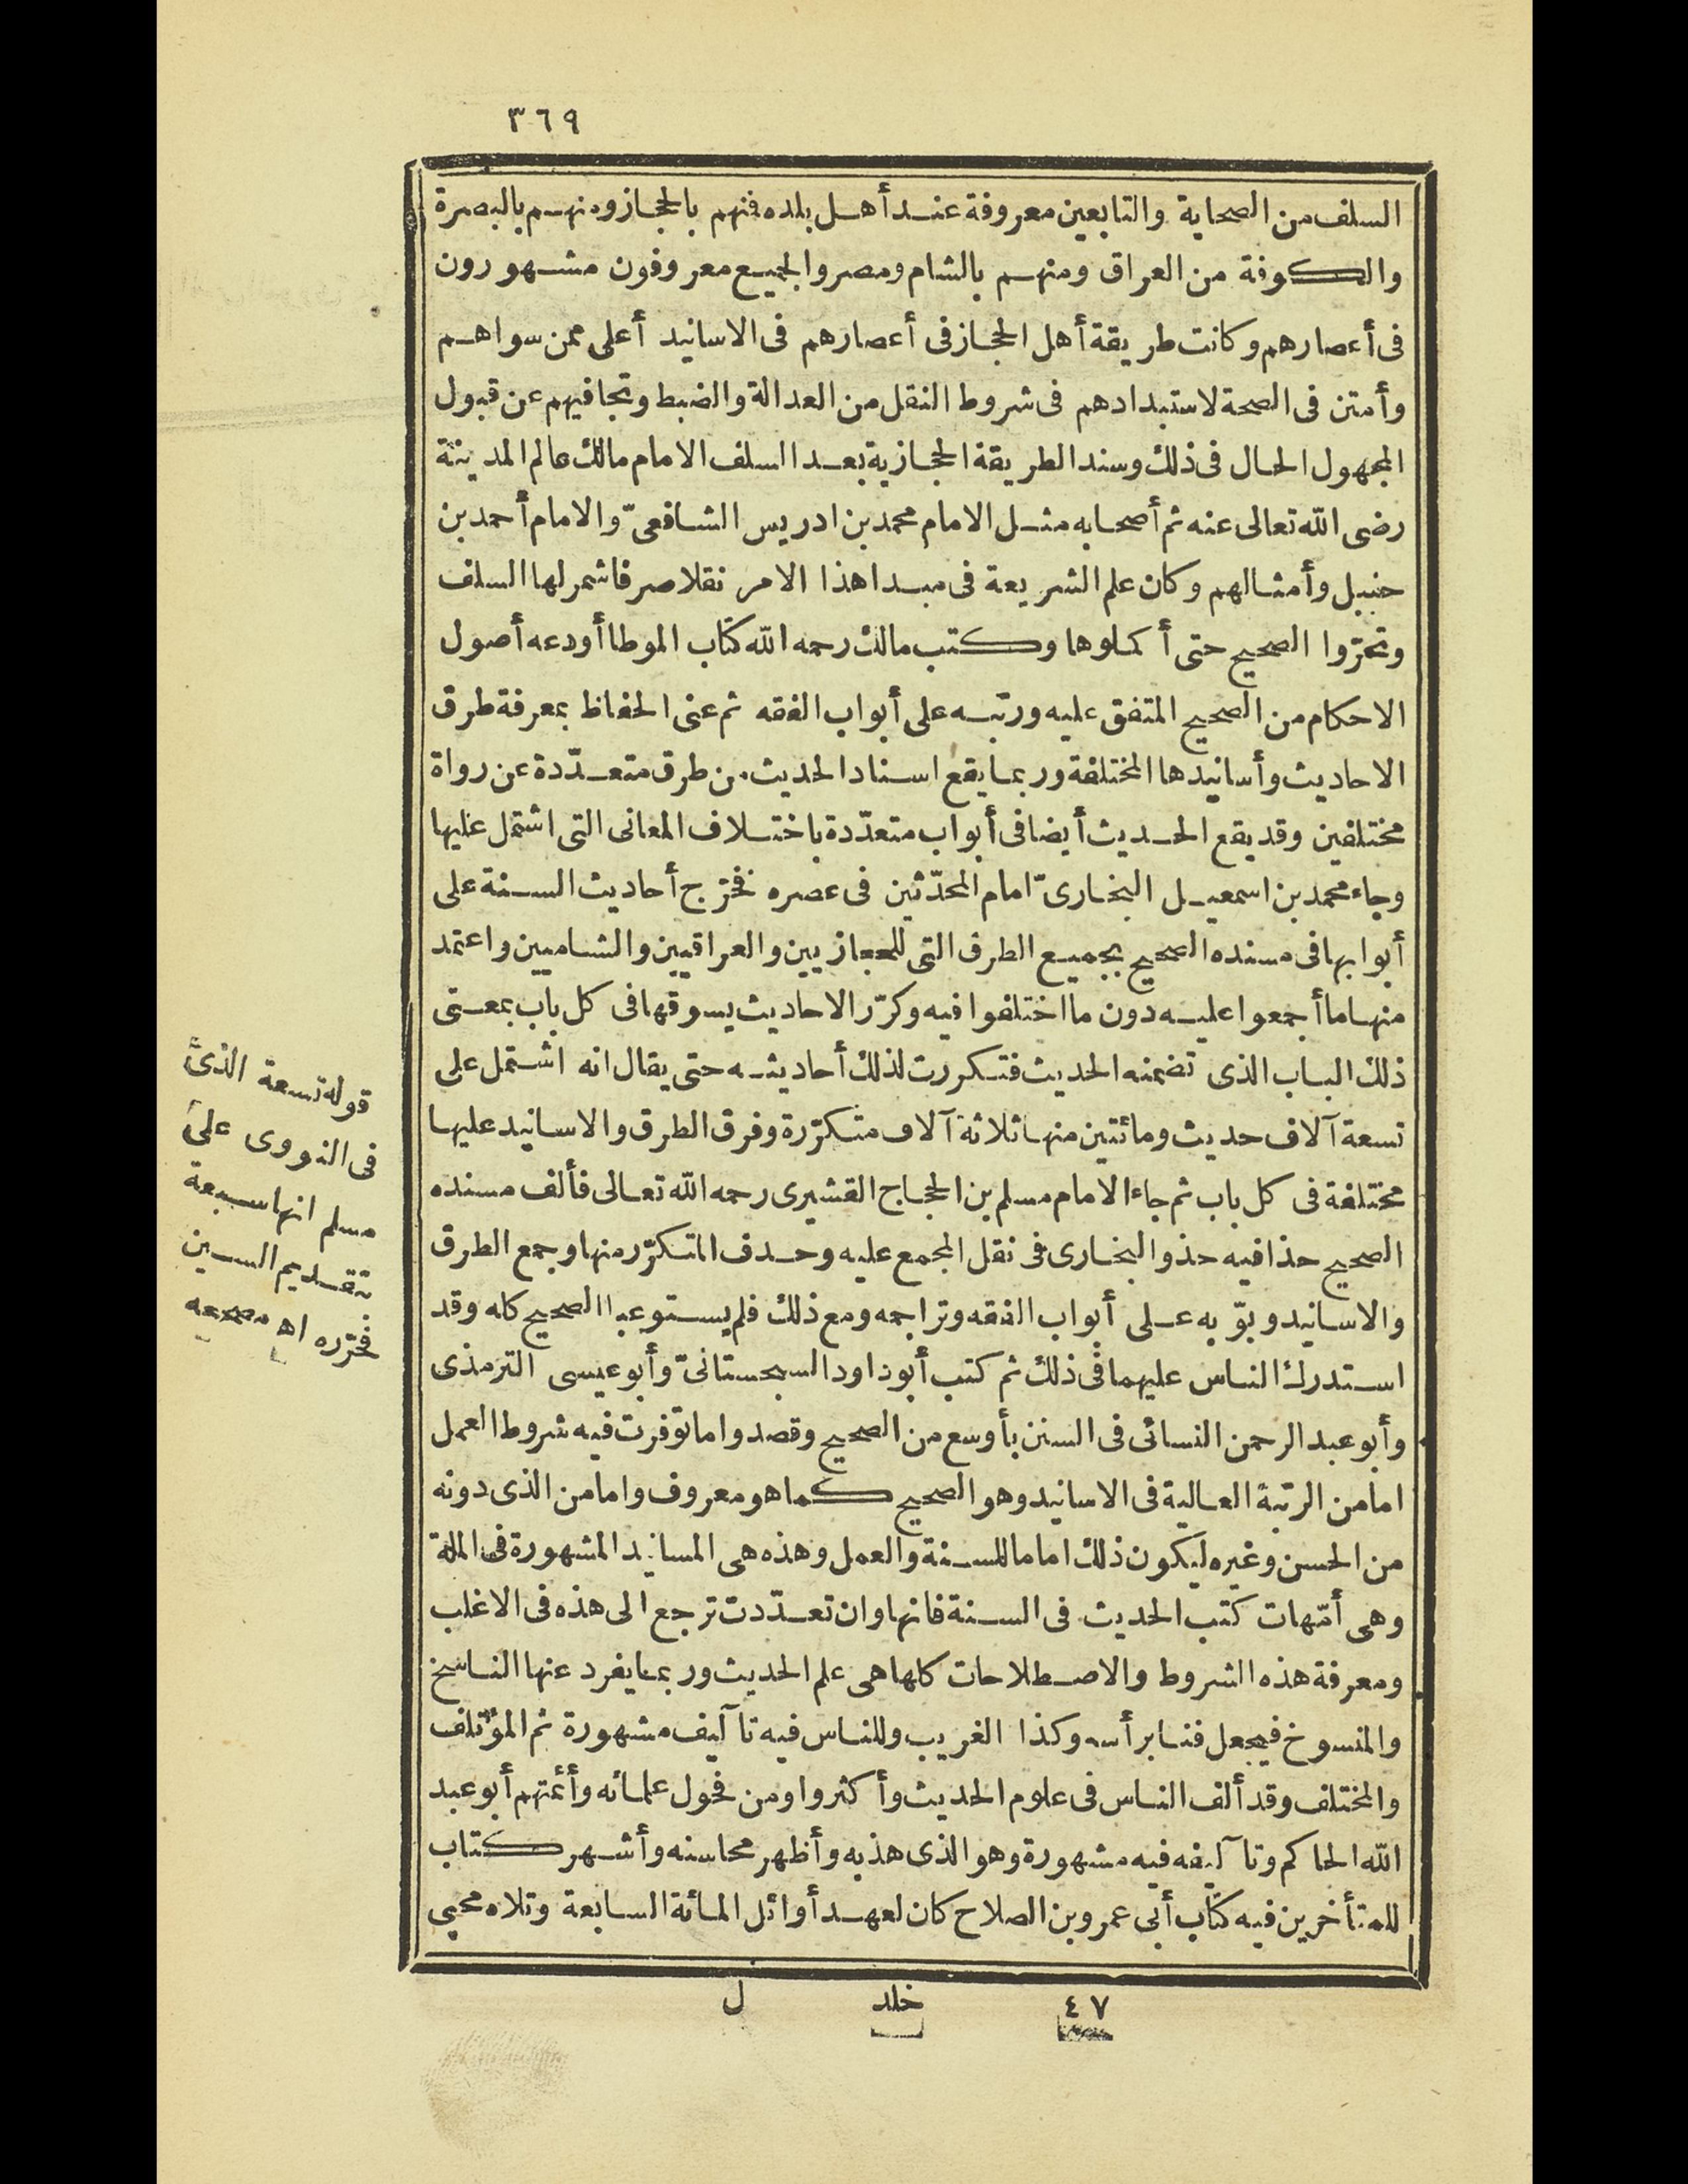 ٣٦٩
السلف من الصحابة والتابعين معروفة عند أهل بلده فنهم بالحجاز ومنهم بالبصرة
والكوفة من العراق ومنهم بالشام ومصر والجميع معروفون مشهورون
فى أعصارهم وكانت طريقة أهل الحجاز فى أعصارهم فى الاسانيد أعلى ممن سواهم
وأمتن فى الصحة لاستبدادهم فى شروط النقل من العدالة والضبط وتجافيهم عن قبول
المجهول الحال فى ذلك وسند الطريقة الحجازية بعد السلف الامام مالك عالم المدينة
رضى الله تعالى عنه ثم أصحابه مثل الامام محمد بن ادريس الشافعىّ والامام أحمد بن
حنبل وأمثالهم وكان علم الشريعة فى مبدا هذا الامر نقلا صرفا شمر لها السلف
وتحرّوا الصحيح حتى أكملوها وكتب مالك رحمه الله كتاب الموطا أودعه أصول
الاحكام من الصحيح المتفق عليه ورتبه على أبواب الفقه ثم عنى الحفاظ بمعرفة طرق
الاحاديث وأسانيدها المختلفة وربما يقع اسناد الحديث من طرق متعدّدة عن رواة
مختلفين وقد يقع الحديث أيضا فى أبواب متعدّدة باختلاف المعانى التى اشتمل عليها
وجاء محمد بن اسمعيل البخارىّ امام المحدّثين فى عصره فخرّج أحاديث السنة على
أبوابها فى مسنده الصحيح بجميع الطرق التى للحجازيين والعراقيين والشاميين واعتمد
منها ما أجمعوا عليه دون ما اختلفوا فيه وكرّر الاحاديث يسوقها فى كل باب بمعنى
ذلك الباب الذى تضمنه الحديث فتكررت لذلك أحاديثه حتى يقال انه اشتمل على
تسعة آلاف حديث ومائتين منها ثلاثة آلاف متكرّرة وفرق الطرق والاسانيد عليها
مختلفة فى كل باب ثم جاء الامام مسلم بن الحجاج القشيرى رحمه الله تعالى فألف مسنده
الصحيح حذا فيه حذو البخارى فى نقل المجمع عليه وحذف المتكرّر منها وجمع الطرق
والاسانيد وبوّبه على أبواب الفقه وتراجمه ومع ذلك فلم يستوعبا الصحيح كله وقد
استدرك الناس عليهما فى ذلك ثم كتب أبو داود السجستانىّ وأبو عيسى الترمذى
وأبو عبد الرحمن النسائى فى السنن بأوسع من الصحيح وقصدوا ما توفرت فيه شروط العمل
اما من الرتبة العالية فى الاسانيد وهو الصحيح كما هو معروف واما من الذى دونه
من الحسن وغيره ليكون ذلك اماما للسنة والعمل وهذه هى المسانيد المشهورة فى الملة
وهى أمّهات كتب الحديث فى السنة فانها وان تعدّدت ترجع الى هذه فى الاغلب
ومعرفة هذه الشروط والاصطلاحات كلها هى علم الحديث وربما يفرد عنها الناسخ
والمنسوخ فيجعل فنا برأسه وكذا الغريب وللناس فيه تآليف مشهورة ثم المؤتلف
والمختلف وقد ألف الناس فى علوم الحديث وأكثروا ومن فحول علمائه وأئمتهم أبو عبد
الله الحاكم وتآليفه فيه مشهورة وهو الذى هذبه وأظهر محاسنه وأشهر كتاب
للمتأخرين فيه كتاب أبى عمرو بن الصلاح كان لعهد أوائل المائة السابعة وتلاه محيى
قوله تسعة الذى
فى النووى على
مسلم انها سبعة
بتقديم السين
فحرّره اه مصححه
٤٧ خلد ل